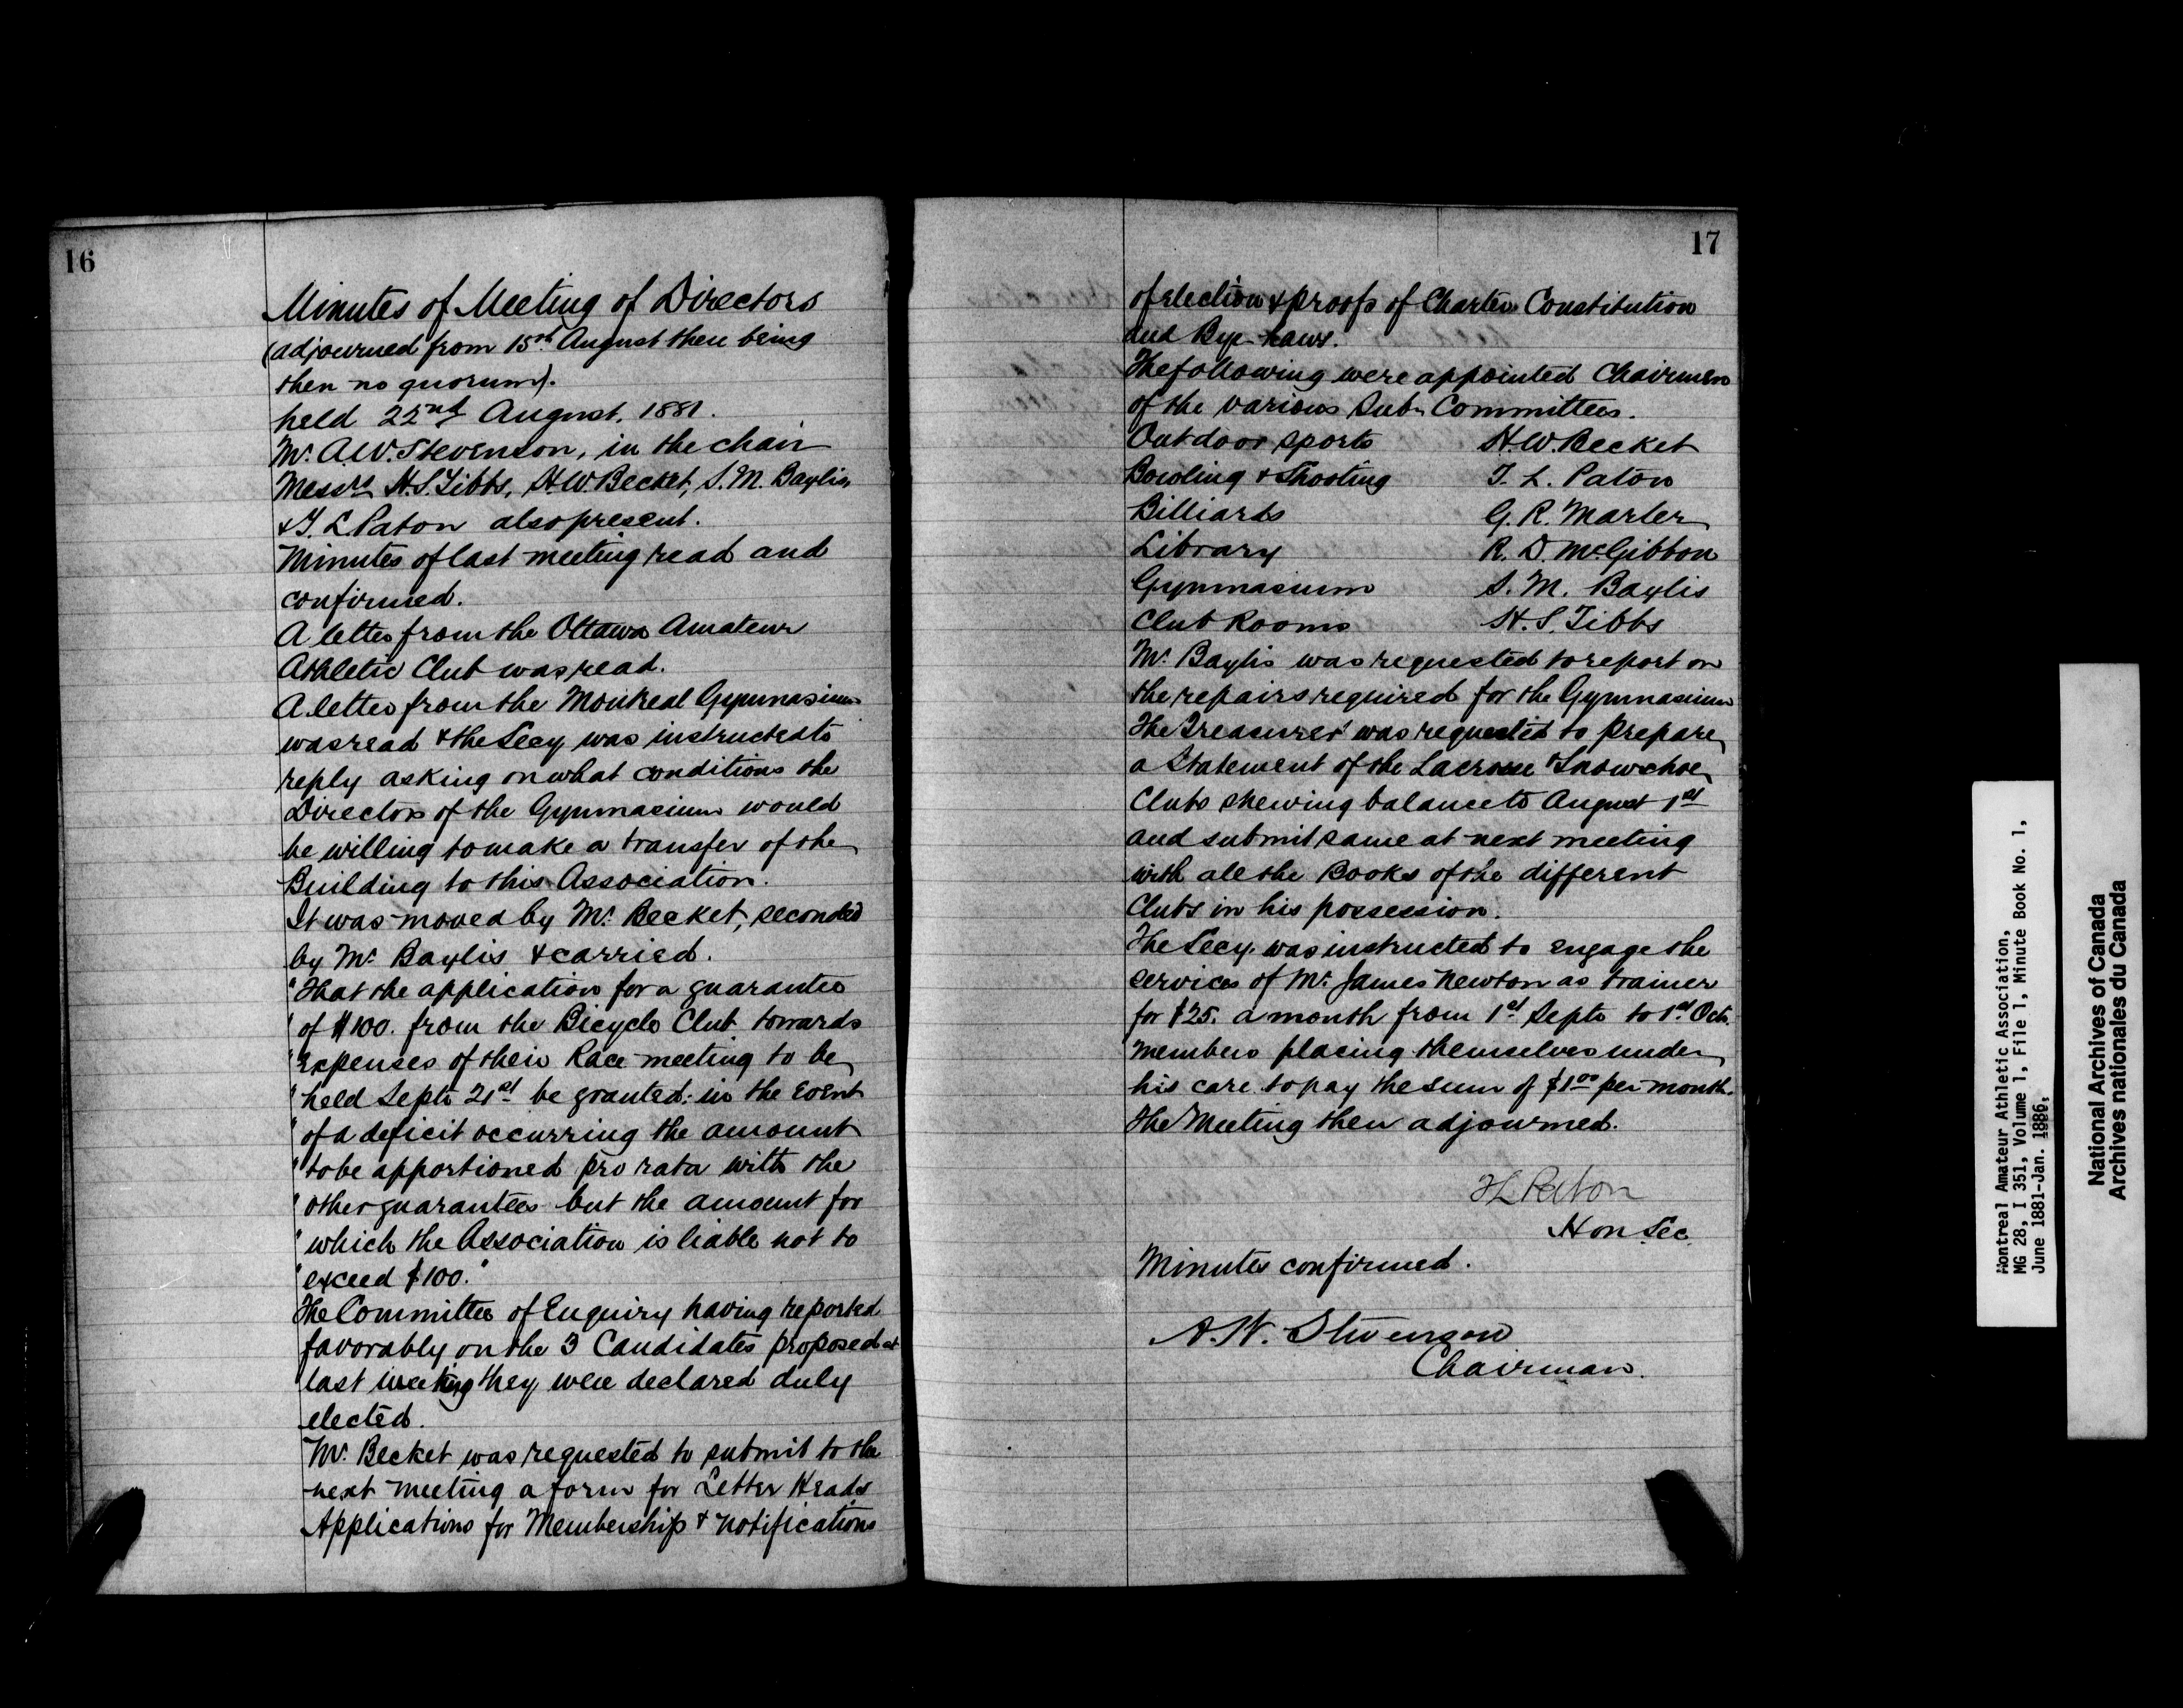 16
Minutes of Meeting of Directors
(adjourned from 15th August then being
then no quorum).
held 22nd August. 1881.
Mr. A.W. Stevenson, in the chair
Messrs H.S. Tibbs, H.W. Becket, S.M. Baylis
& T. L. Paton also present.
Minutes of last meeting read and
confirmed.
A letter from the Ottawa Amateur
Athletic Club was read.
A letter from the Montreal Gymnasium
was read & the Secy was instructed to
reply asking on what conditions the
Directors of the Gymnasium would
be willing to make a transfer of the
Building to this Association.
It was moved by Mr. Becket, seconded
by Mr. Baylis & carried.
"That the application for a guarantee
" of $100. from the Bicycle Club towards
" expenses of their Race meeting to be
" held Septr 21st be granted: in the Event
" of a deficit occurring the amount
" to be apportioned pro rata with the
" other guarantees but the amount for
" which the Association is liable not to
" exceed $100."
The Committee of Enquiry having reported
favorably on the 3 Candidates proposed at
last meeting they were declared duly
elected.
Mr. Becket was requested to submit to the
next meeting a form for Letter Heads
Applications for Membership & notifications
17
of election & proofs of Charter Constitution
and Bye-Laws.
The following were appointed Chairmen
of the various Sub-Committees.
Outdoor sports H.W. Becket
Bowling & Shooting T. L. Paton
Billiards G. R. Marler
Library R. D. McGibbon
Gymnasium S. M. Baylis
Club Rooms H. S. Tibbs
Mr. Baylis was requested to report on
the repairs required for the Gymnasium
The Treasurer was requested to prepare
a Statement of the Lacrosse & Snowshoe
Clubs shewing balance to August 1st
and submit same at next meeting
with all the Books of the different
Clubs in his possession.
The Secy. was instructed to engage the
services of Mr. James Newton as trainer
for $25. a month from 1st Septr to 1st Octr.
members placing themselves under
his care to pay the sum of $1.00 per month.
The Meeting then adjourned.
T L Paton
Hon Sec.
Minutes confirmed.
A. W. Stevenson
Chairman.
Montreal Amateur Athletic Association,
MG 28, I 351, Volume 1, File 1, Minute Book No. 1,
June 1881-Jan. 1886.
National Archives of Canada
Archives nationales du Canada